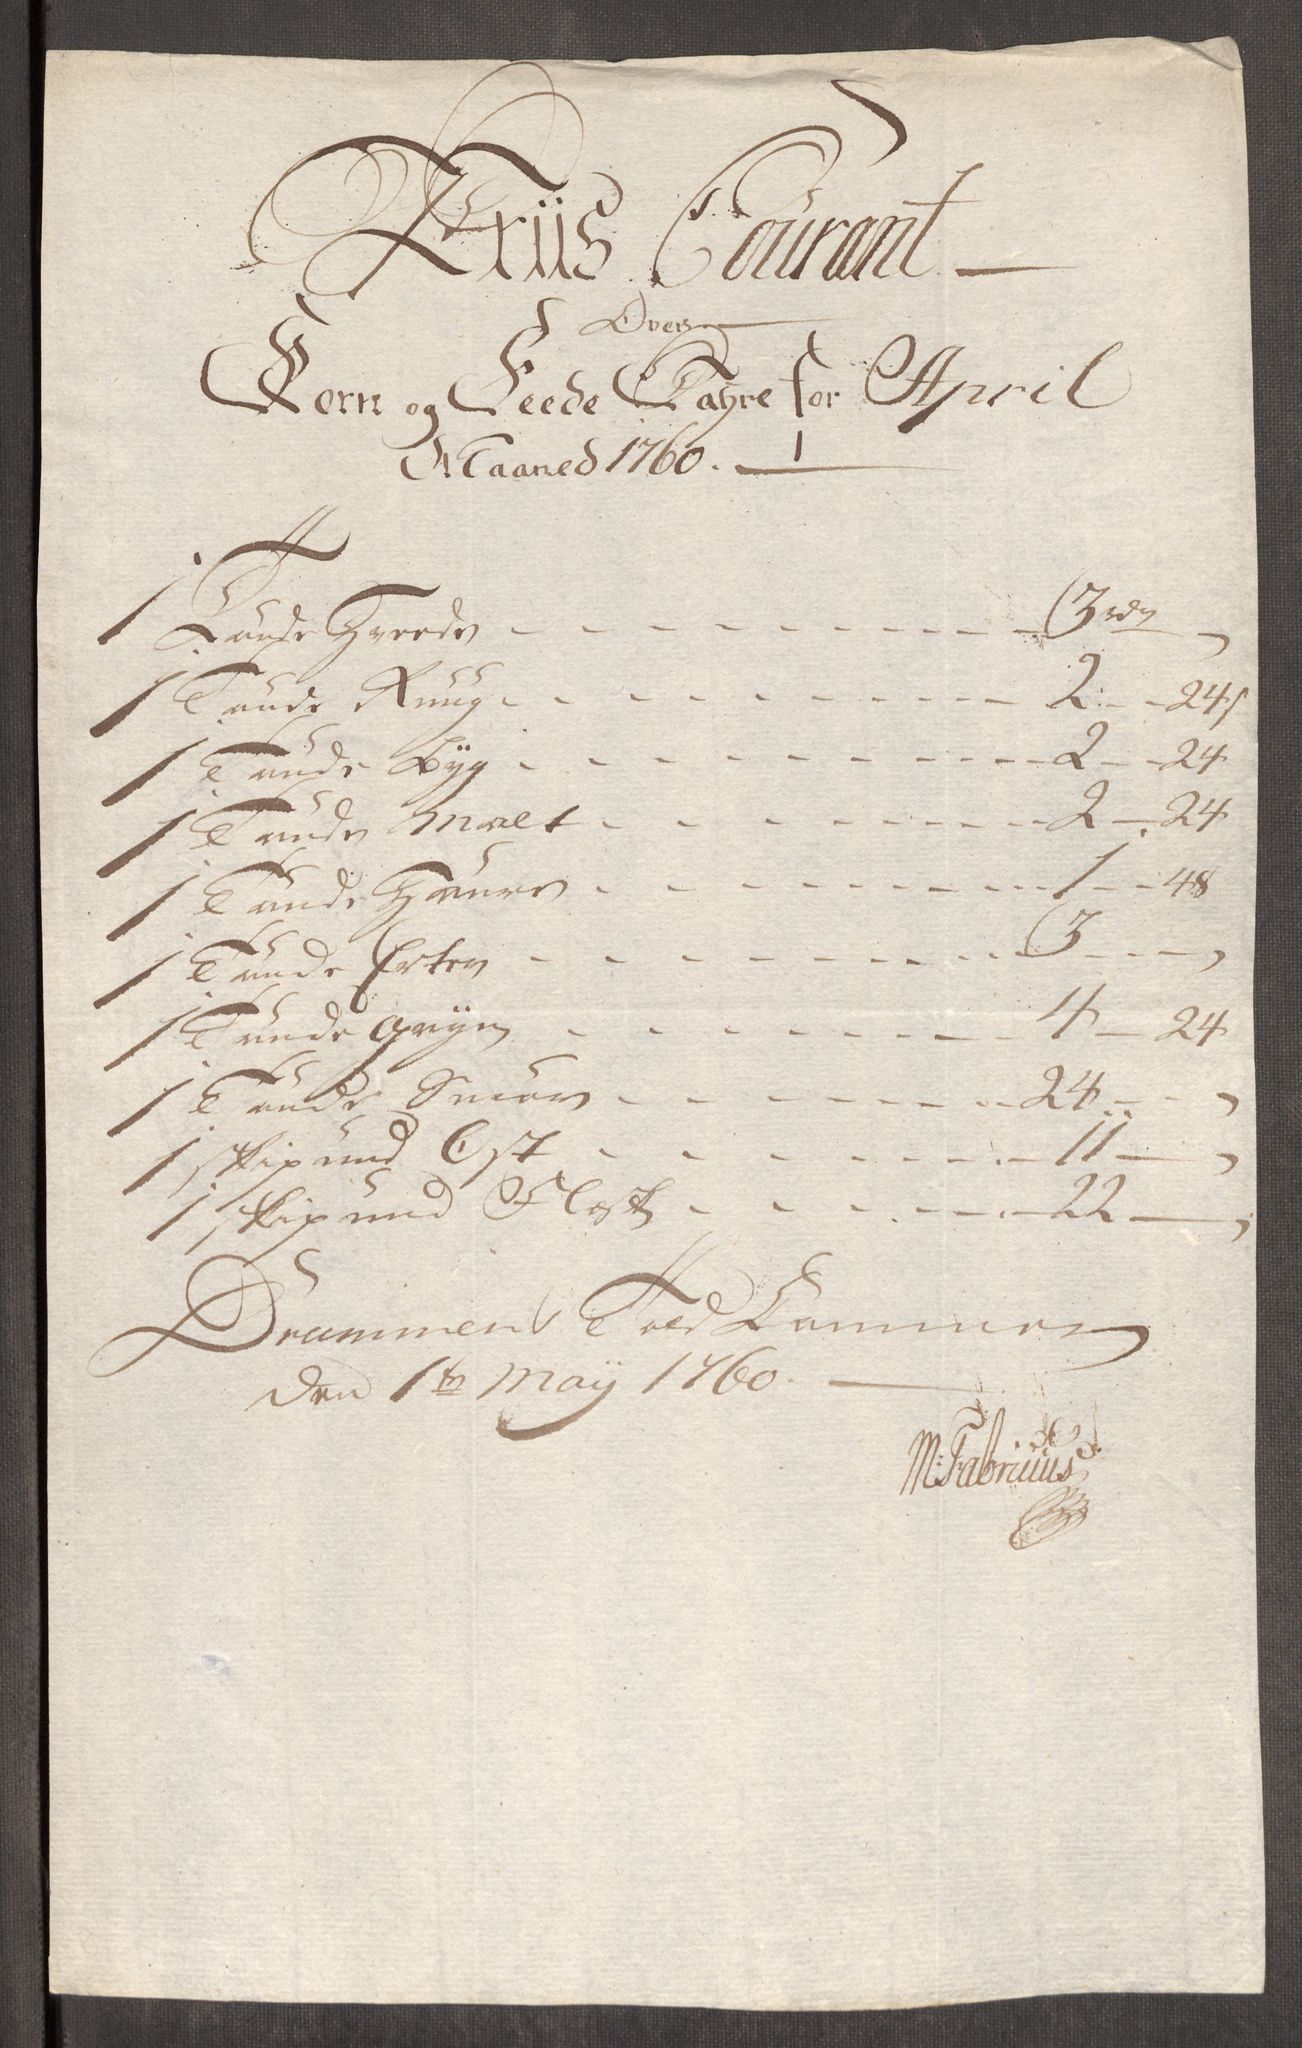 Priis Courant
Over
Korn og Feede Vahre for April
Maaned 1760.
1 Tønde Hvede - - - 3 rdr
1 Tønde Ruug - - - 2 - 24 s
1 Tønde Byg - - - 2 - 24
1 Tønde Malt - - - 2 - 24
1 Tønde Haure - - - 1 - 48
1 Tønde Erter - - - 3 -
1 Tønde gryn - - - 4 - 24
1 Tønde Smør - - - 24 -
1 skipund Ost - - - 11 -
1 skipund Flesk - - - 22 -
Drammens Told Kammer
den 1te May 1760.
M: Fabritius